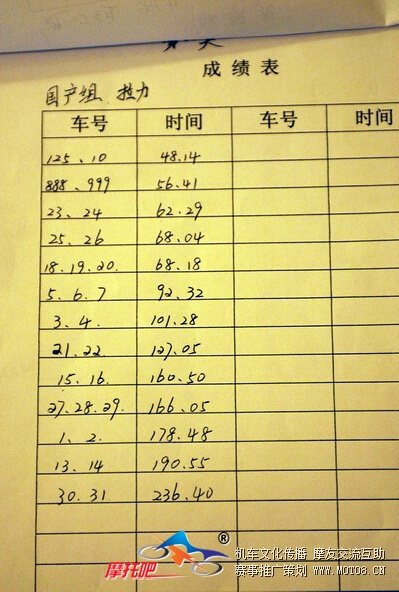 成绩表
国产组 拉力
车号 时间 车号 时间
125、10 48.14
888、999 56.41
23、24 62.29
25、26 68.04
18.19.20. 68.18
5.6.7 92.32
3.4. 101.28
21.22 127.05
15.16. 160.50
27.28.29. 166.05
1、2. 178.48
13.14 190.55
30.31 236.40
摩托吧 ®
机车文化传播 摩友交流互助
赛事推广策划 WWW.MOTO8.CN